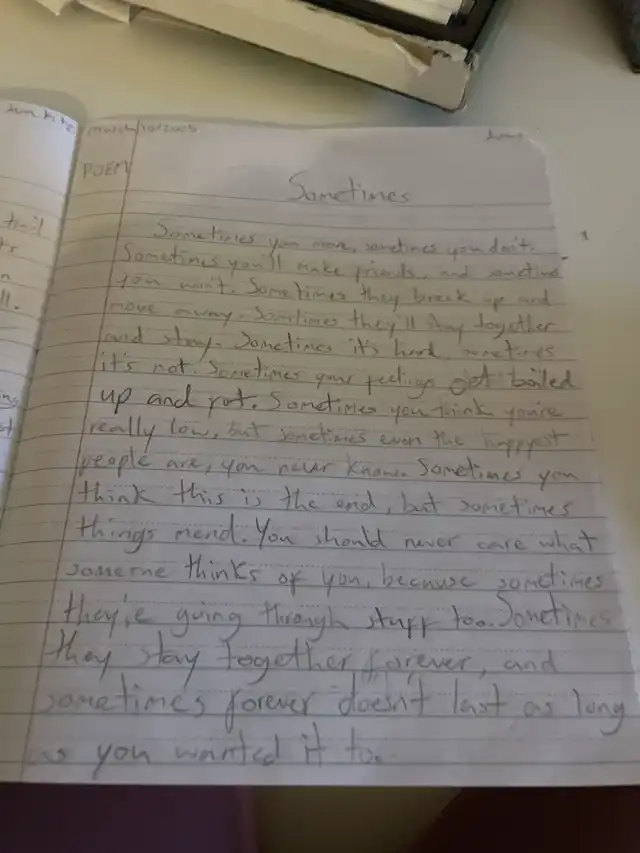 POEM
Sometimes
Sometimes you move, sometimes you don't.
Sometimes you'll make friends, and sometimes
you won't. Sometimes they break up and
move away. Sometimes they'll stay together
and stay. Sometimes it's hard, sometimes
it's not. Sometimes your feelings get boiled
up and rot. Sometimes you think you're
really low, but sometimes even the happyest
people are, you never know. Sometimes you
think this is the end, but sometimes
things mend. You should never care what
someone thinks of you, because sometimes
they'e going through stuff too. Sometimes
they stay together forever, and
sometimes forever doesn't last as long
as you wanted it to.